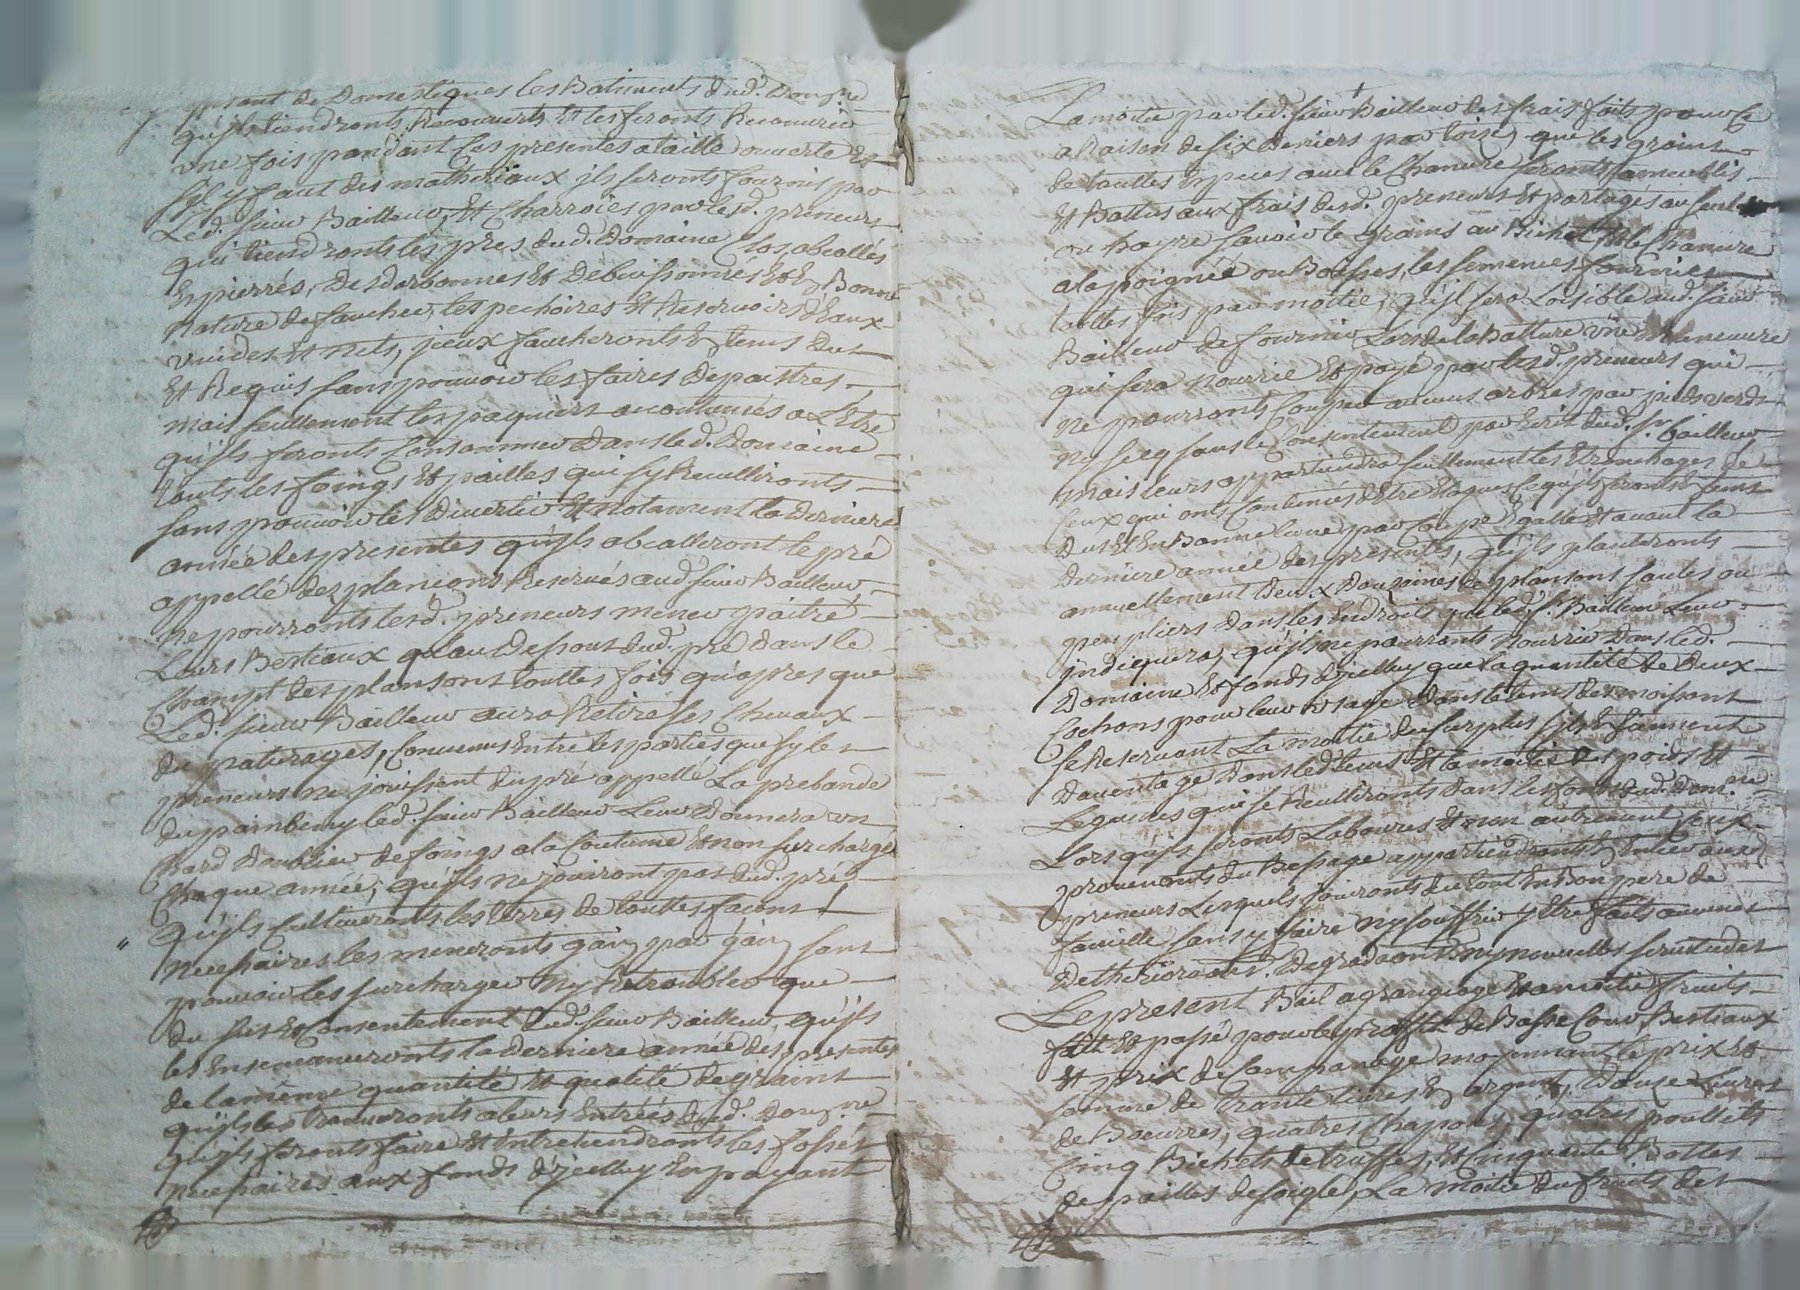 de Domestiques les Batiments dud. Domne
qu'jls tiendronts Recouverts et les feronts Recouvrir
vne fois pandant les presentes a taille ouverte et
s'jl y faut des matheriaux jls seronts fournis par
Led. sieur Bailleur, et Charroiés par lesd. preneurs
qui tiendronts les prés dud. Domaine Clos, abeallés
Enpierrés, Desdarbonnes et Debuissonnés et En Bonne
Nature de fauchée, les pechoires et Reservoirs d'Eaux
vuides et Nets, jceux faucheronts En tems dut
et Requis sans pouvoir les faires Depaistres,
mais seullement les paquiers accoutumés a L'Etre
qu'jls feronts Consommer Dans led. Domaine
touts les foings et pailles qui s'y Recuillironts
sans pouvoir les Divertir et Notament la Derniere
année des presentes qu'jls abealleront le pré
appellé des plançons Reservés aud. sieur Bailleur,
Ne pourronts lesd. preneurs mener paitre
Leurs Bestiaux qu'au Dessout dud. pré dans le
Champt des plansons touttes fois qu'apres que
Led. sieur Bailleur aura Retiré ses Chevaux
du paturages, Convenus Entre les parties que sy les
preneurs ne jouissent du pré appellé La prebande
du pain beny led. sieur Bailleur Leur Donnera un
Chard de foings a la Coutume et non surchargé
Chaque année, qu'jls ne jouiront pas dud. pré
Qu'jls Cultiveronts les terres de touttes façons
Necessaires les meneronts gain par gain sans
pouvoir les surcharger Ny Retroubler que
du sut et Consentement dud. sieur Bailleur, qu'jls
les Ensemanceronts la Derniere année des presentes
de la même quantité et qualité de grains
qu'jls les trouveronts a leurs Entrées dud. Domne
Qu'jls feronts faire et Entretiendronts les fossés
Necessaires aux fonds d'jcelluy En payant
La moitié par led. sieur Bailleur des frais faits pour Ce
a Raison de six deniers par toise, que les grains
de touttes Especes avec le Chanvre seronts ameublis
et Battus aux frais desd. preneurs et partagés au seul
savoir le grains au Bichet et le Chanvre
a la poignée ou Boësses, les semences fournies
touttes fois par moitié, qu'jl sera Loisible aud. sieur
Bailleur de fournir Lors de la Batture vne
qui sera Nourrie et payé par lesd. preneurs qui
ne pourronts Couper aucuns arbres par pieds verds
Ny secq sans le Consentement par Ecrit dud. sr. bailleur
mais leurs appartiendra seullement les Etronchages de
Ceux qui onts Coutumes d'Etre Elagués, Ce qu'jls feronts En tems
dus et En Bonne Lune par Coupe Egalle et avant la
derniere année des presentes, qu'jls planteronts
annuellement Deux Douzaines de plansons saules ou
peupliers dans les Endroits que led. sr. Bailleur Leur
jndiquera, qu'jls ne pourronts Nourrir dans led.
Domaine et fonds d'jcelluy que la quantité de Deux
Cochons pour leur usage dans le tems des moissons
se Reservant La moitié du surplus s'jls En tiennent
Davantage dans led. tems et la moitié des poids et
Legumes qui se Recuillironts dans les fonds dud. Domne
Lorsqu'jls seronts Labourés et non autrement Ceux
provenants du Bessage appartiendronts En Entier auxd.
preneurs Lesquels jouironts du tout En Bon pere de
famille sans y faire Ny souffrir y Etre faits aucunes
Detheriorations. Degradaons Ny nouvelles servitudes
Le present Bail a grangeage et a moitié fruits
fait et passé pour le proffit de Basse Cour Bestiaux
et prix de Companage moyennant le prix et
somme de trante livres En argent, Douze Livres
de Boeurres, quatres Chapons, quatres poullets
Cinq Bichets de truffes, et Cinquante Bottes
de pailles de seigle, La moitié du fruits des